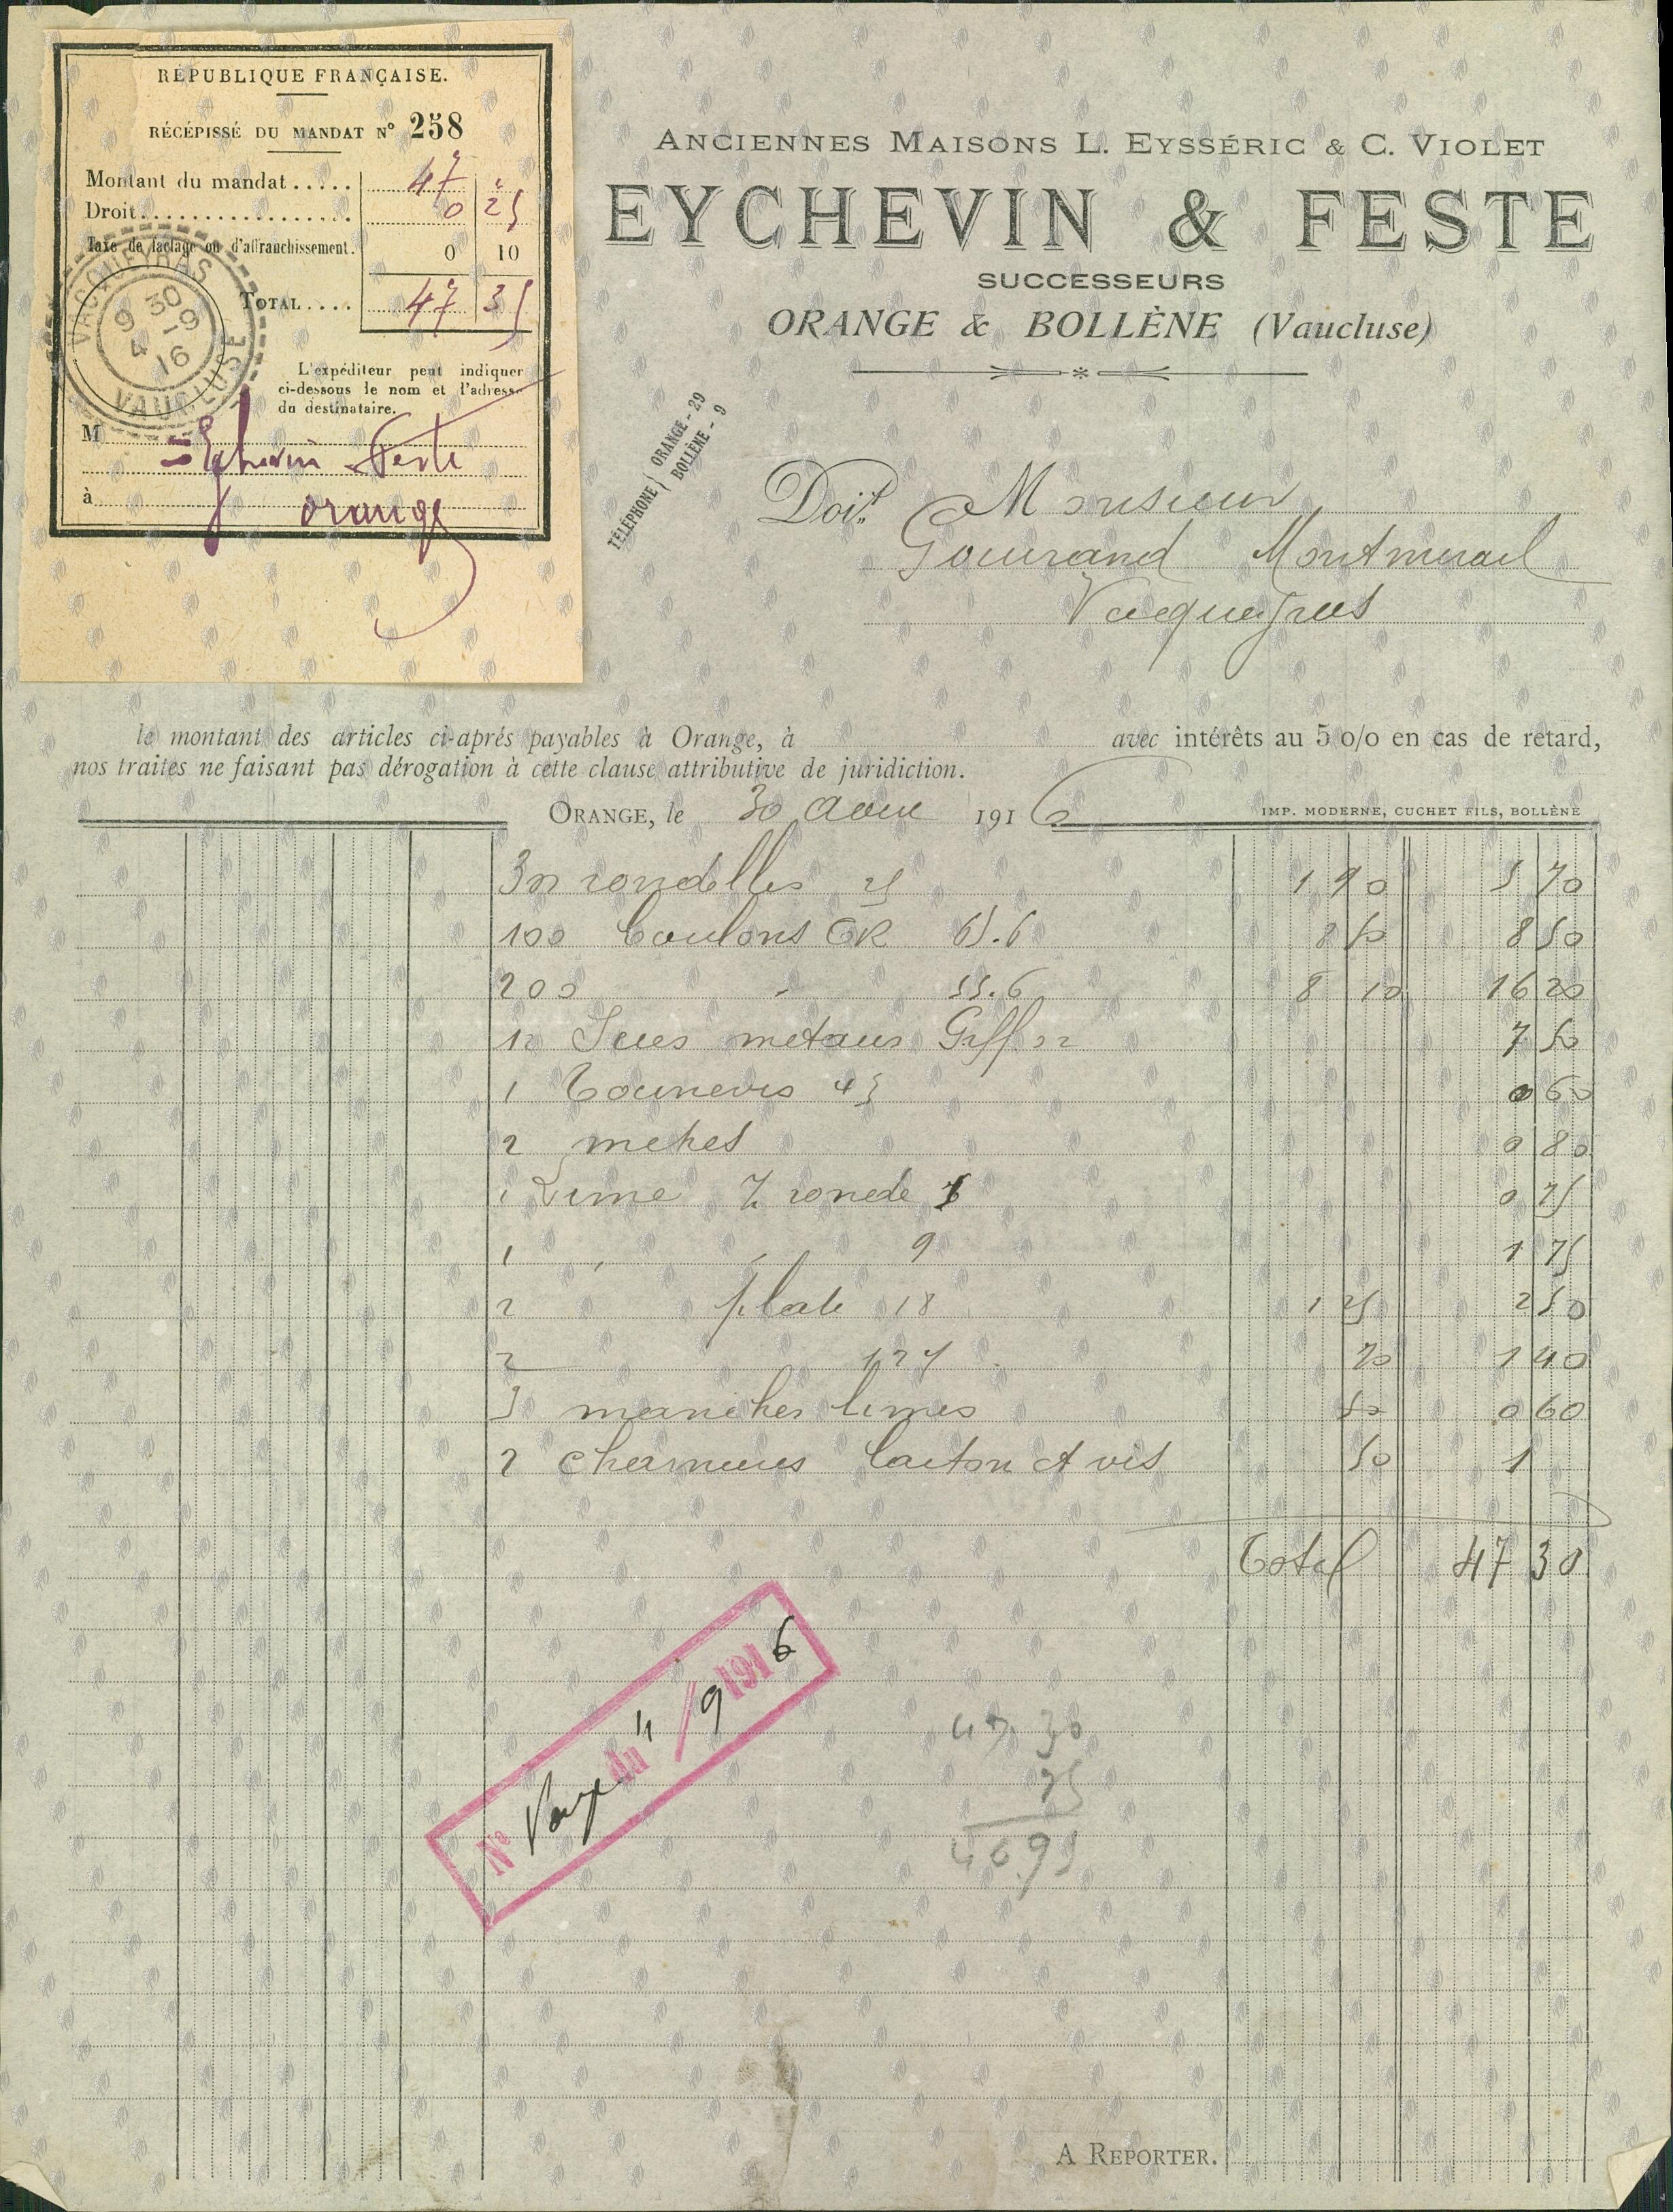 RÉPUBLIQUE FRANÇAISE.
RÉCÉPISSÉ DU MANDAT N° 258
Montant du mandat..... 47 "
Droit................. 0 25
Taxe de factage ou d'affranchissement. 0 10
TOTAL.... 47 35
VACQUEYRAS
9 30
4-9
16
VAUCLUSE
L'expéditeur peut indiquer
ci-dessous le nom et l'adresse
du destinataire.
M Eychevin Feste
à orange
ANCIENNES MAISONS L. EYSSÉRIC & C. VIOLET
EYCHEVIN & FESTE
SUCCESSEURS
ORANGE & BOLLÈNE (Vaucluse)
TÉLÉPHONE { ORANGE - 29
BOLLÈNE - 9
Doit Monsieur
Gourrand Montmirail
Vacqueyras
le montant des articles ci-aprés payables à Orange, à avec intérêts au 5 o/o en cas de retard,
nos traites ne faisant pas dérogation à cette clause attributive de juridiction.
ORANGE, le 30 Aout 1916
IMP. MODERNE, CUCHET FILS, BOLLÈNE
rondelles 25 1 90 5 70
100 Boulons CR 65.6 8 50 8 50
200 " 55.6 8 10 16 20
12 Scies metaux Griffon 7 50
1 Tournevis 0 60
2 meches 0 80
1 Lime ½ ronde 0 75
1 " " 9 1 75
2 " plate 18 1 25 2 50
2 70 1 40
3 manches limes 0 60
2 charnieres laiton et vis 50 1
Total 47 30
N° Payé du 4/9 1916
47 30
46 95
A REPORTER.